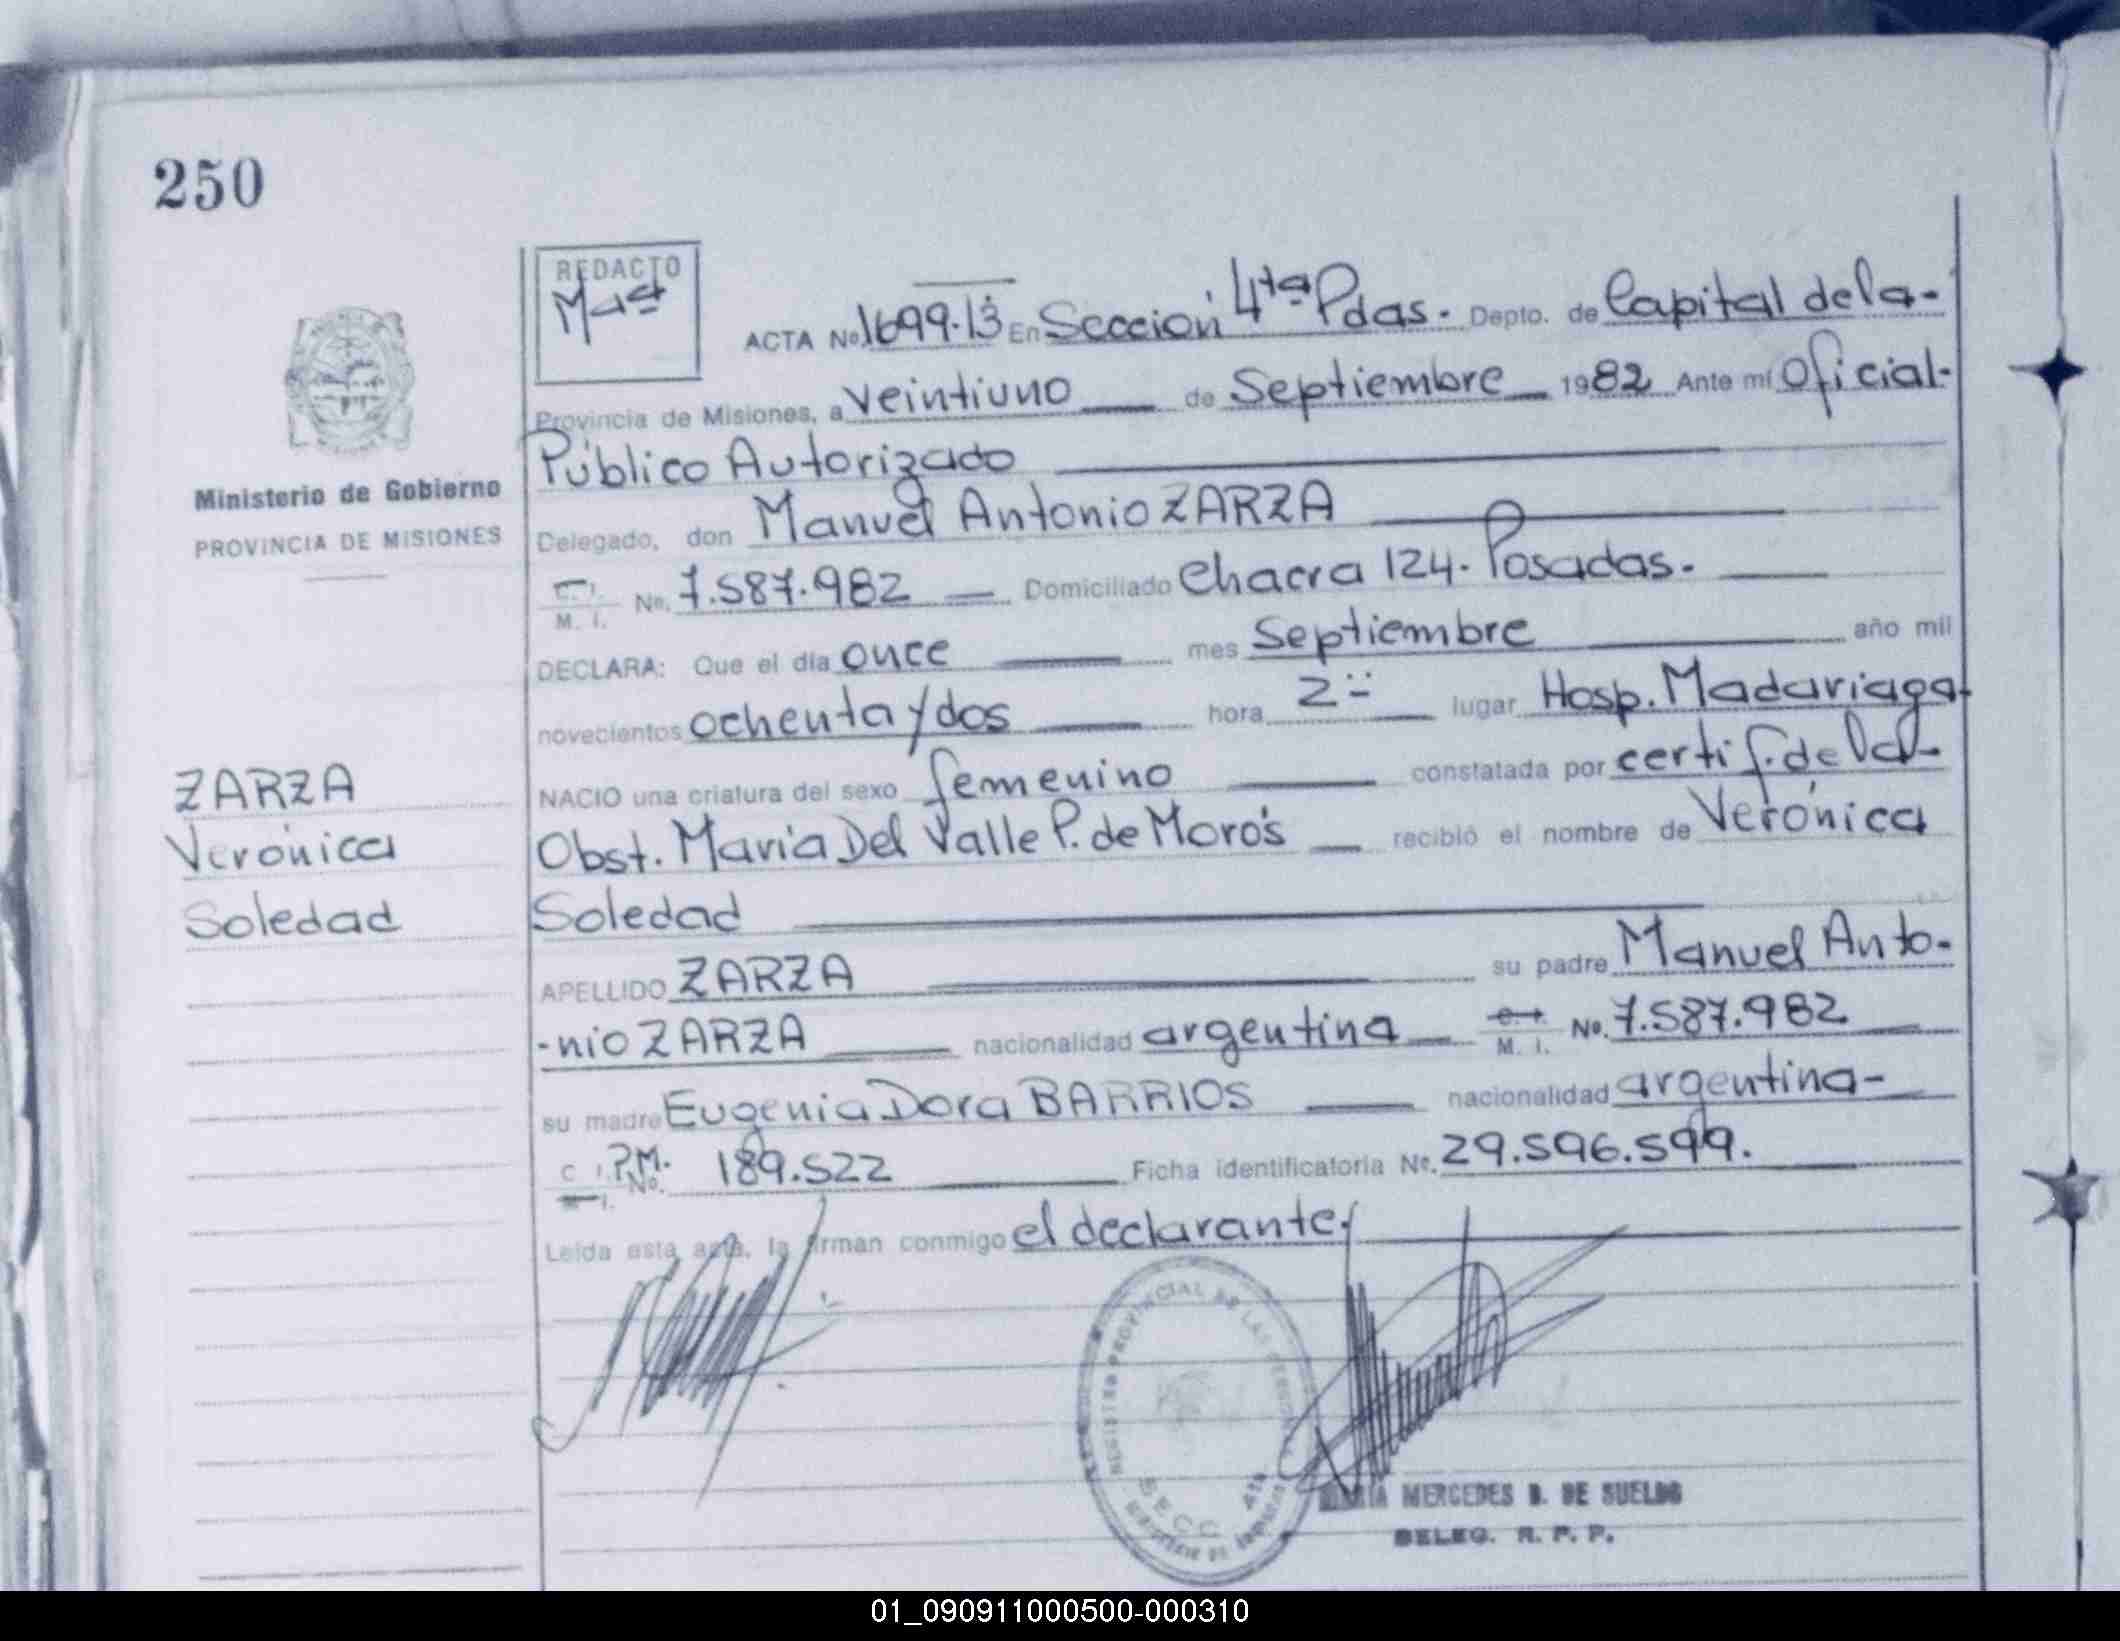 250
REDACTO
ACTA No. 1699.13 En Sección 4ta Pdas. Depto. de Capital de la-
Provincia de Misiones, a veintiuno de Septiembre 1982 Ante mi Oficial-
Público Autorizado
Ministerio de Gobierno
PROVINCIA DE MISIONES
Delegado, don Manuel Antonio ZARZA
C. I.
M. I. No. 7.587.982 Domiciliado Chacra 124. Posadas.
DECLARA: Que el día once mes Septiembre año mil
novecientos ochenta y dos hora 2 lugar Hosp. Madariaga
NACIO una criatura del sexo femenino constatada por certif. de la
Obst. Maria Del Valle P. de Moro's recibió el nombre de Verónica
Soledad
ZARZA
Verónica
Soledad
APELLIDO ZARZA su padre Manuel Anto-
-nio ZARZA nacionalidad argentina C. I. M. I. No. 7.587.982
su madre Eugenia Dora BARRIOS nacionalidad argentina-
C I. P.M. No. 189.522 Ficha identificatoria No. 29.596.599.
Leída esta acta, la firman conmigo el declarante.
REGISTRO PROVINCIAL DE LAS PERSONAS
SECC. 4ta
MERCEDES B. DE SUELDO
DELEG. R. P. P.
01_090911000500-000310